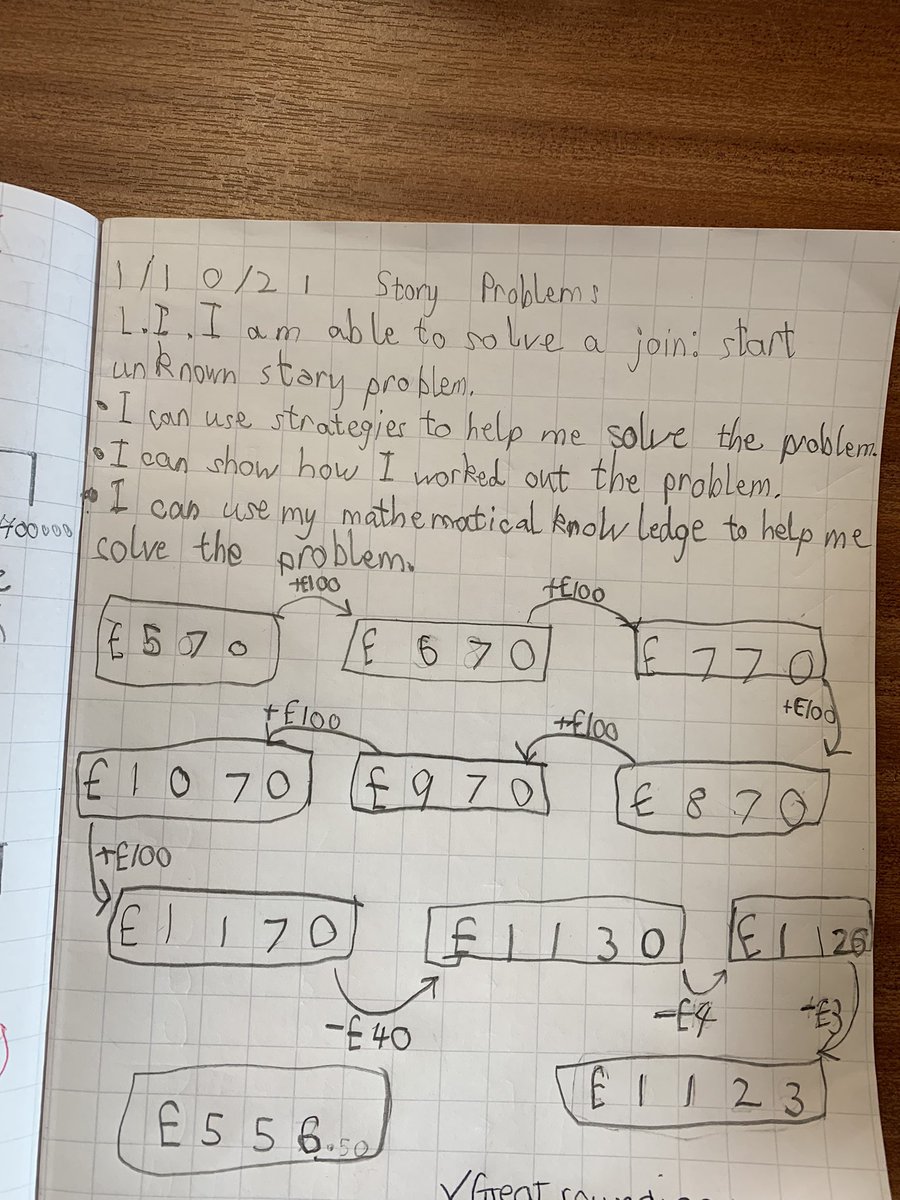 400000
1/10/21 Story Problems
L.I. I am able to solve a join: start
unknown story problem.
• I can use strategies to help me solve the problem.
• I can show how I worked out the problem.
• I can use my mathematical knowledge to help me
solve the problem.
+£100 +£100
£570 £670 £770
+£100 +£100 +£100
£1070 £970 £870
+£100
£1170 £1130 £1126
-£40 -£4 -£3
£1123
£556.50
✓Great